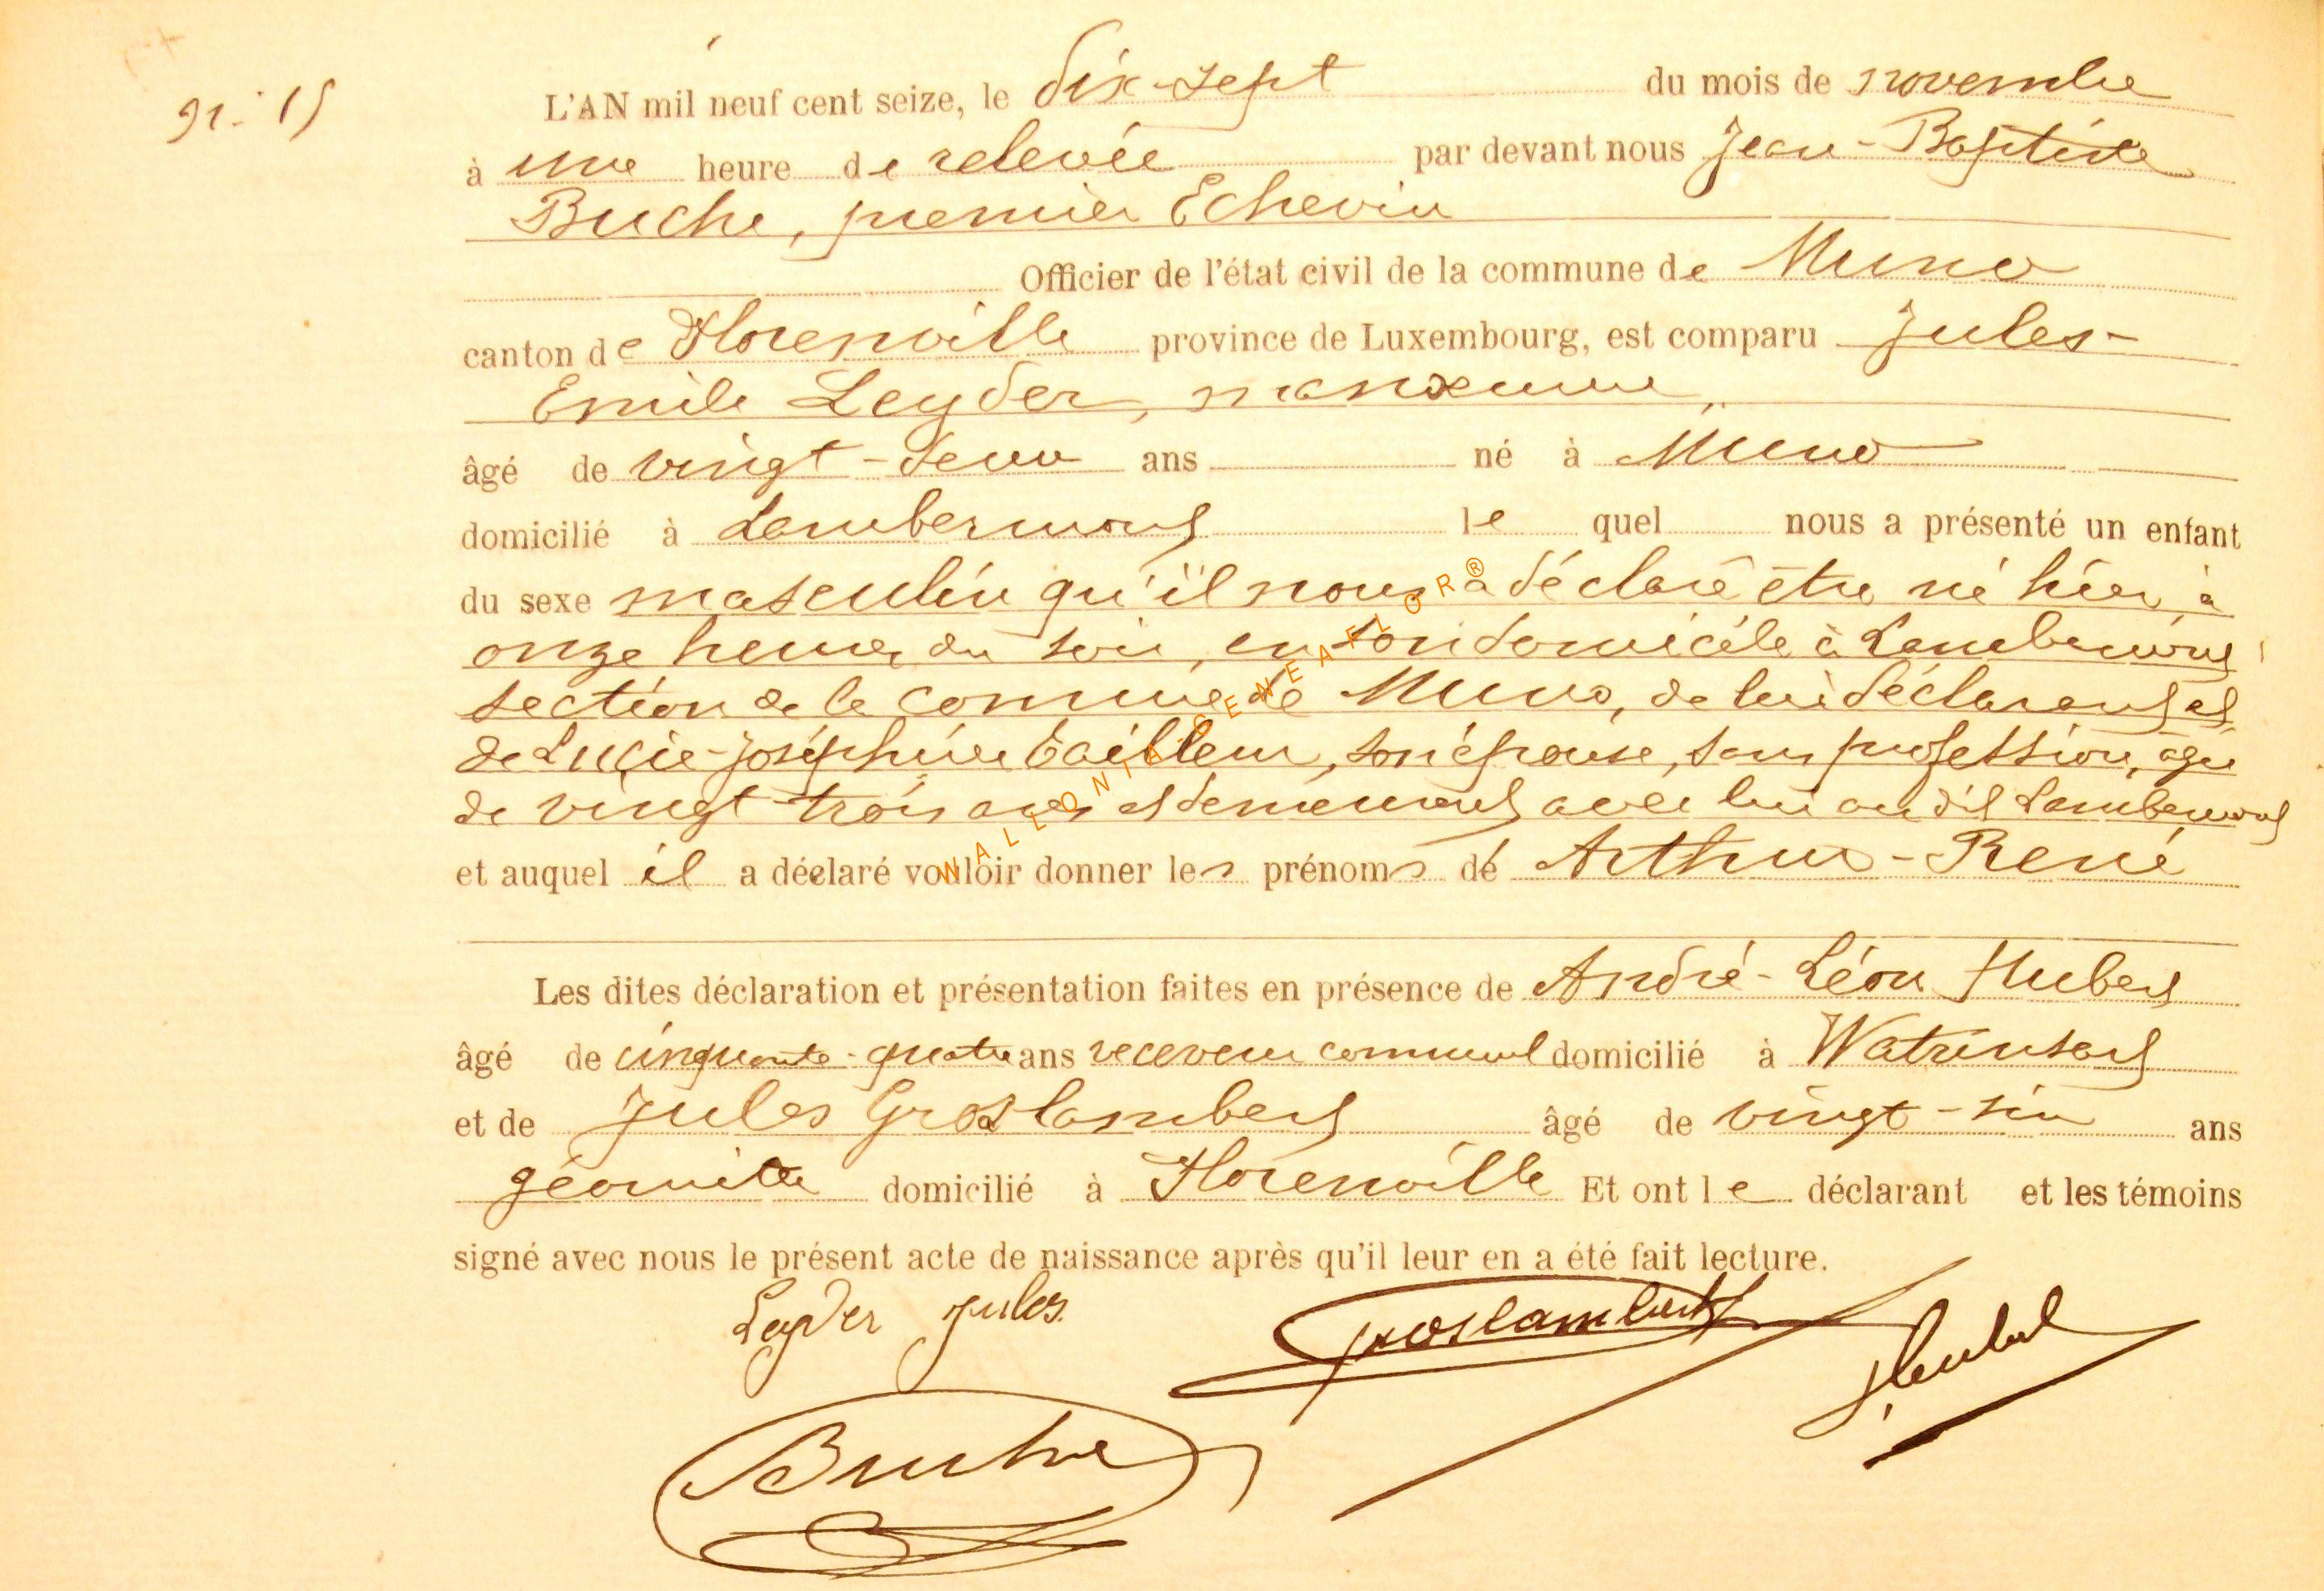 n: 15
L'AN mil neuf cent seize, le dix-sept du mois de novembre
à une heure de relevée par devant nous Jean-Baptiste
Buche, premier Echevin
Officier de l'état civil de la commune de Muno
canton de Florenville province de Luxembourg, est comparu Jules-
Emile Leyder, manœuvre,
âgé de vingt-deux ans né à Muno
domicilié à Lambermont le quel nous a présenté un enfant
du sexe masculin qu'il nous a déclaré être né hier, à
onze heures du soir, en son domicile à Lambermont
section de la commune de Muno, de lui déclarant et
de Lucie-Joséphine, son épouse, sans profession, âgée
de vingt-trois ans et demeurant avec lui au dit Lambermont
et auquel il a déclaré vouloir donner les prénoms de Arthur-René
Les dites déclaration et présentation faites en présence de André-Léon Hubert
âgé de cinquante-quatre ans receveur communal domicilié à Watrinsart
et de Jules Groslambert âgé de vingt-six ans
géomètre domicilié à Florenville Et ont le déclarant et les témoins
signé avec nous le présent acte de naissance après qu'il leur en a été fait lecture.
Leyder Jules.
Groslambert
Hubert
Buche
WALLONIA GENEAFLOR®